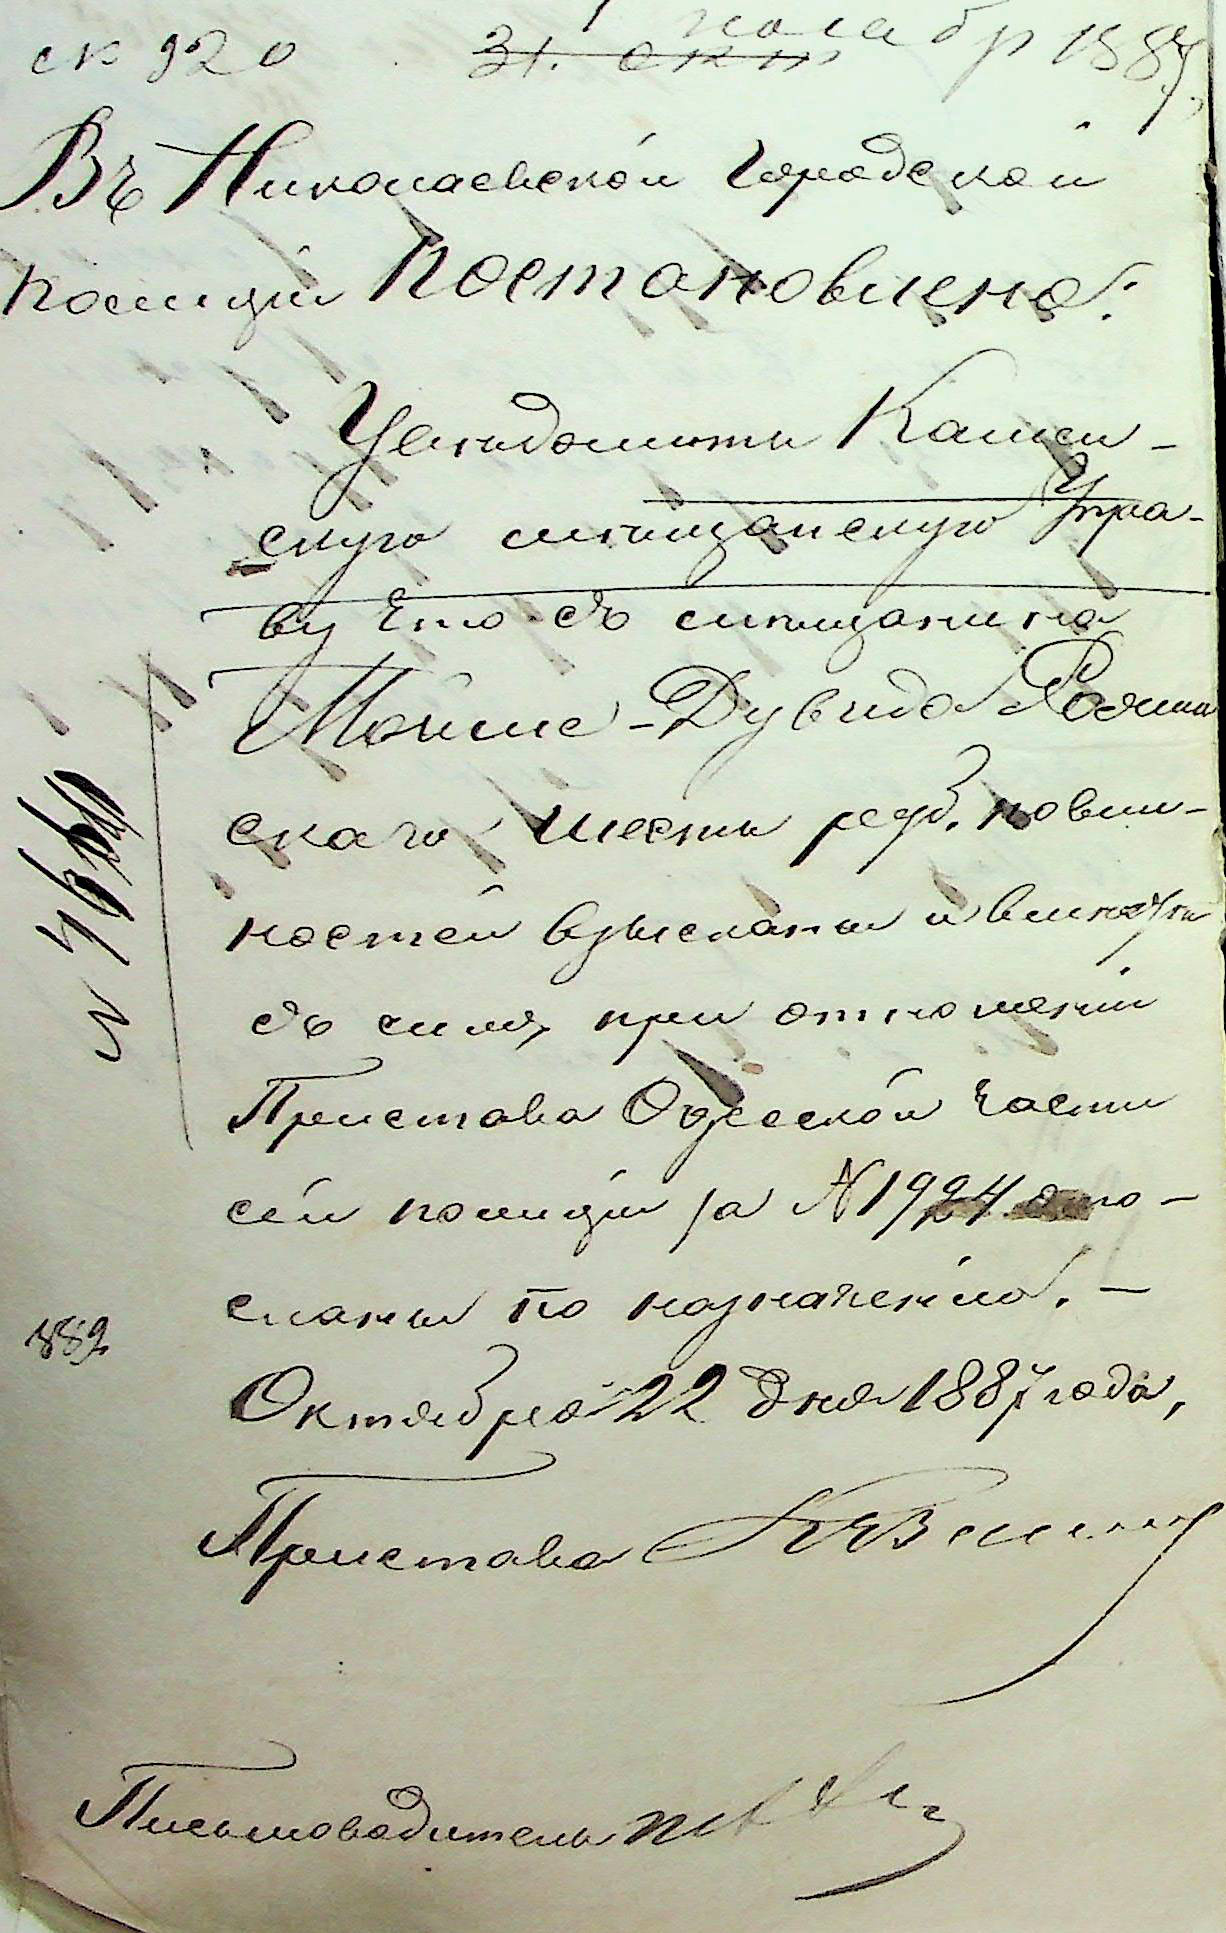 ск 920 31. окт ноября 1887.
Въ Николаевской Городской
Полиціи Постановлено:
Увѣдомить Камен-
скую мѣщанскую Упра-
ву что съ мѣщанина
Мойше-Дувида
скаго шесть руб. повин-
ностей взысканы и
съ симъ при отношеніи
Пристава Одесской Части
сей полиціи за N 1924 ото-
сланы по назначенію. —
Октября 22 дня 1887 года,
Приставъ
889
Письмоводитель